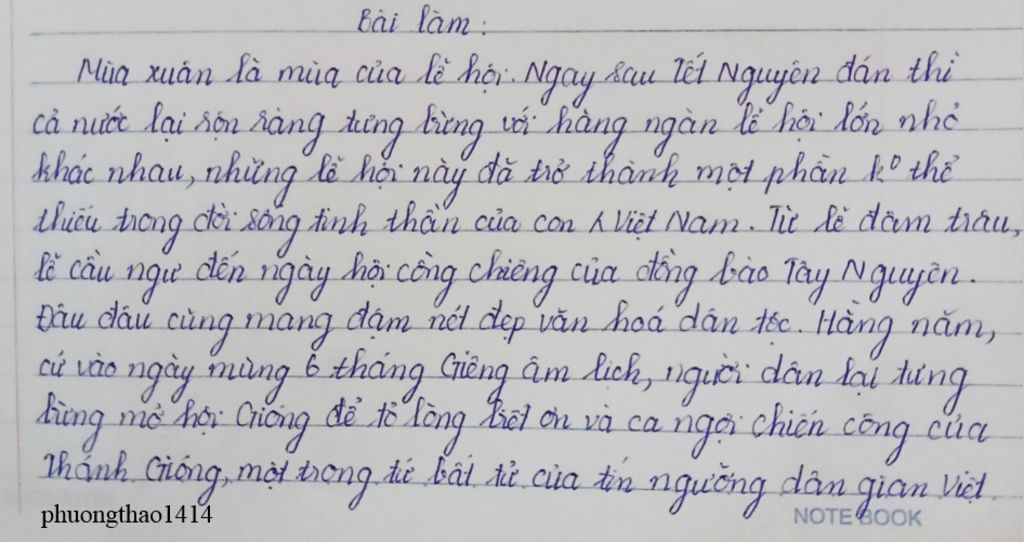 Bài làm:
Mùa xuân là mùa của lễ hội. Ngay sau Tết Nguyên đán thì
cả nước lại rộn ràng tưng bừng với hàng ngàn lễ hội lớn nhỏ
khác nhau, những lễ hội này đã trở thành một phần k° thể
thiếu trong đời sống tinh thần của con ʎ Việt Nam. Từ lễ đâm trâu,
lễ cầu ngư đến ngày hội cồng chiêng của đồng bào Tây Nguyên.
Đâu đâu cũng mang đậm nét đẹp văn hoá dân tộc. Hằng năm,
cứ vào ngày mùng 6 tháng Giêng âm lịch, người dân lại tưng
bừng mở hội Gióng để tỏ lòng biết ơn và ca ngợi chiến công của
Thánh Gióng, một trong tứ bất tử của tín ngưỡng dân gian Việt.
phuongthao1414
NOTE BOOK